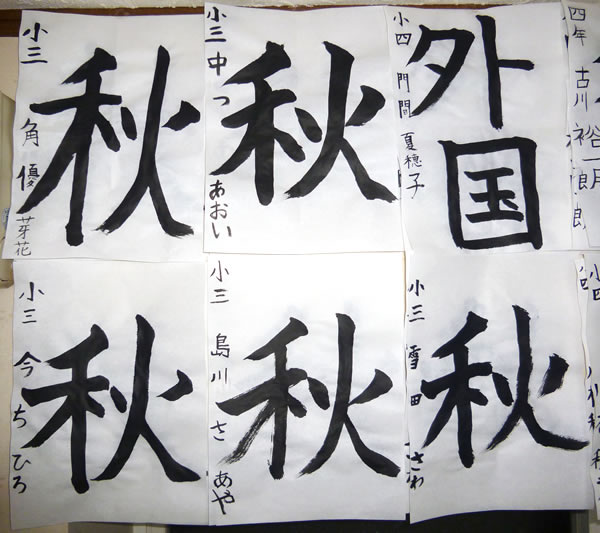 秋
小三 角 優芽花
秋
小三 中つ あおい
外国
小四 門間 夏穂子
四年 古川 裕一郎
秋
小三 今 ちひろ
秋
小三 島川 さあや
秋
小三 雪田 さわ
小四